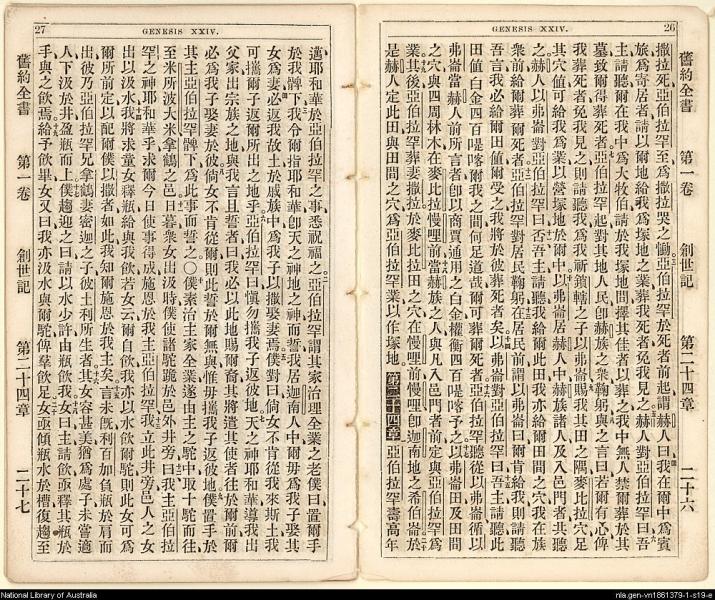 26
GENESIS XXIV.
舊約全書 第一卷 創世記 第二十四章 二十六
撒拉死亞伯拉罕至爲撒拉哭之慟亞伯拉罕於死者前起謂赫人曰我在爾中爲賓
旅爲寄居者請以爾地給我爲塚地之業葬我死者免我見之赫人對亞伯拉罕曰吾
主請聽爾在我中爲大牧伯請於我塚地間擇其佳者以葬之我中無人禁爾葬於其
墓致爾得葬死者亞伯拉罕起對其地人民卽赫族之衆鞠躬與之言曰若爾有心俾
我葬死者免我見之則請聽我爲我祈鎖轄之子以弗崙賜我其田之隅麥比拉穴足
其穴值可給我爲業以營塚地於爾中以弗崙居赫人中赫族諸人及入邑門者共聽
之赫人以弗崙對亞伯拉罕曰否吾主請聽我給爾此田我亦給爾田間之穴我在族
衆前給爾葬爾死者亞伯拉罕對居民鞠躬在居民前謂以弗崙曰爾肯給我則請聽
吾言我必給爾田值爾受之我將於彼葬死者矣以弗崙對亞伯拉罕曰吾主請聽此
田值白金四百喀爾我之間何足道哉爾可葬爾死者亞伯拉罕聽從以弗崙循以
弗崙當赫人前所言者卽以商賈通用之白金權衡四百喀予之以弗崙田及田間
之穴與四周林木在麥比拉慢哩前當赫族之人與凡入邑門者前定爲亞伯拉罕
業其後亞伯拉罕葬妻撒拉於麥比拉田之穴在慢哩前慢哩卽迦南地之希伯崙於
是赫人定此田與田間之穴爲亞伯拉罕業以作塚地第二十四章亞伯拉罕壽高年
27
GENESIS XXIV.
邁耶和華於亞伯拉罕之事悉祝福之亞伯拉罕謂其家治理全業之老僕曰置爾手
於我髀下我令爾指耶和華卽天之神地之神而誓我居迦南人中爾毋爲我子娶其
女爲妻必返我故土於戚族中爲我子以撒娶妻焉僕對曰倘女不肯從我來斯土我
可攜爾子返爾所出之地乎亞伯拉罕曰愼勿攜我子返彼地天之神耶和華導我出
父家出宗族之地與我言且誓者曰我必以此地賜爾裔其將遣其使者往於爾前爾
必爲我子娶妻於彼倘女不肯從爾則此誓於爾無與惟毋攜我子返彼地僕置手於
其主亞伯拉罕髀下爲此事而誓之〇僕素治主家全業遂由主之駝中取十駝而往
至米所波大米拿鶴之邑日暮衆女出汲時僕使諸駝跪於邑外井旁曰我主亞伯拉
罕之神耶和華乎求爾今日使事得成施恩於我主亞伯拉罕我立此井旁邑人之女
出以汲水我將求童女釋瓶給與我飲若女云爾自飲我亦以水飲爾駝則此女可爲
爾所前定以配爾僕以撒者如此我知爾施恩於我主矣言未旣利百加負瓶於肩而
出彼乃亞伯拉罕兄拿鶴妻密迦之子彼土利所生者其女容甚美猶爲處子未嘗適
人下汲於井盈瓶而上僕趨迎之曰請以水少許由瓶飲我女曰主請飲亟釋其瓶於
手與之飲焉給予飲畢女又曰我亦汲水與爾駝俾羣飲足女亟傾瓶水於槽復趨至
舊約全書 第一卷 創世記 第二十四章 二十七
National Library of Australia
nla.gen-vn1861379-1-s19-e